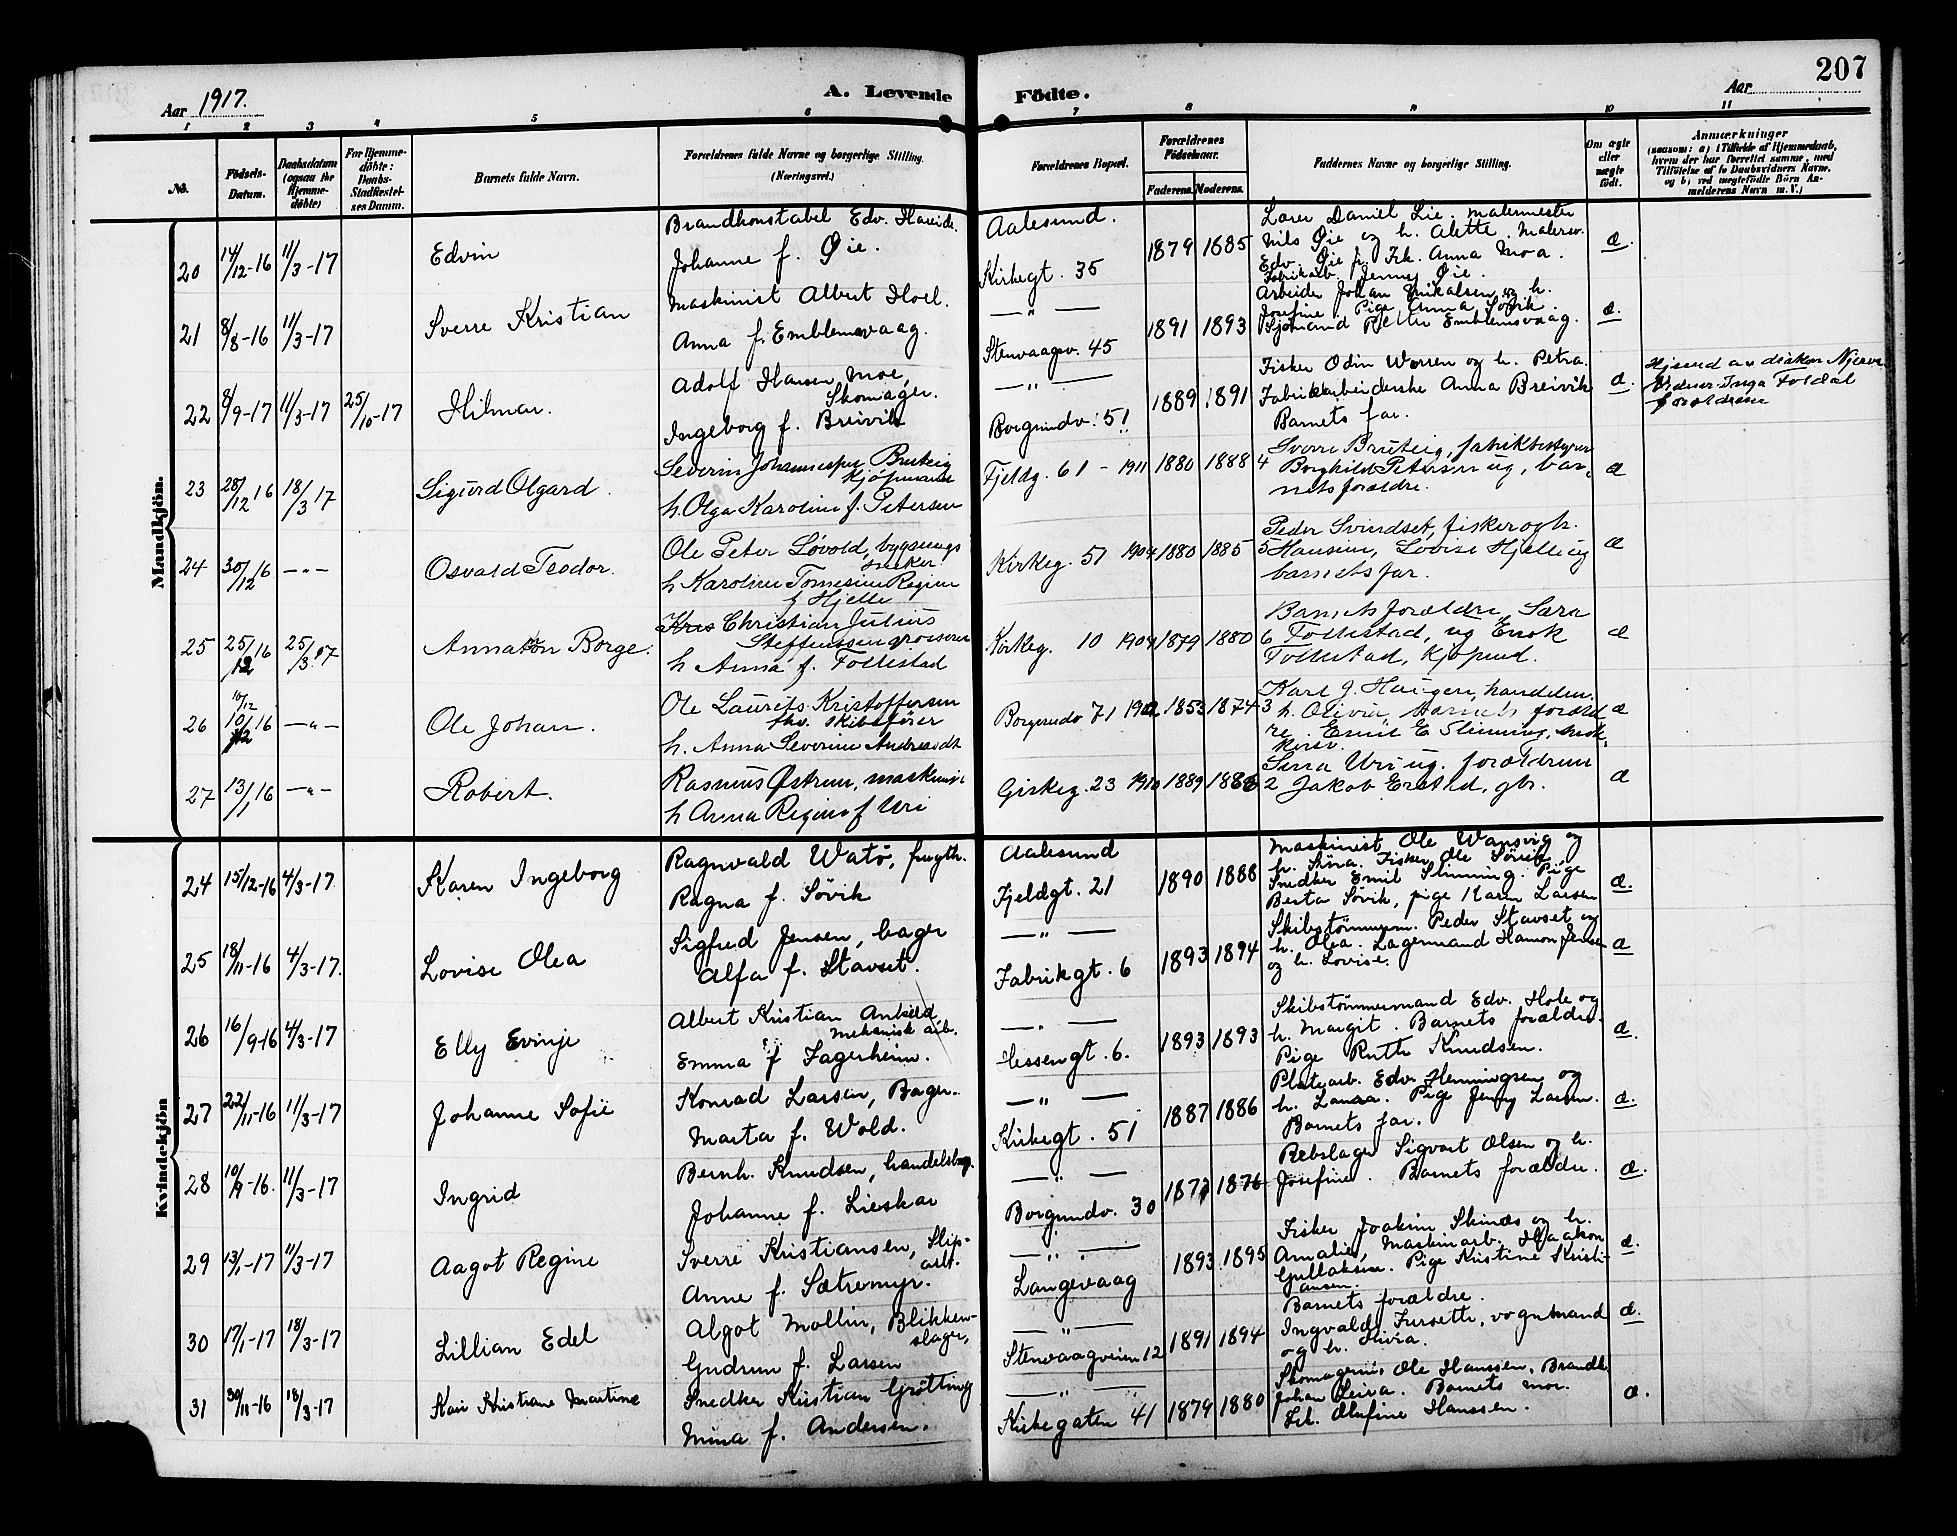 207
Aar 1917. A. Levende Födte. Aar
1 2 3 4 5 6 7 8 9 10 11
No. Födsels-Datum. Daabsdatum (ogsaa for Hjemmedöbte) For Hjemmedöbte: Daabs-Stadfestelses Datum. Barnets fulde Navn. Forældrenes fulde Navne og borgerlige Stilling. (Næringsvei.) Forældrenes Bopæl. Forældrenes Födselsaar. Faderens. Moderens. Faddernes Navne og borgerlige Stilling. Om ægte eller uægte födt. Anmærkninger
Mandkjön.
20 14/12-16 11/3-17 Edvin
Brandkonstabel Edv. Hareide.
Johanne f. Øie.
Aalesund.
Kirkegt. 35
1879 1885
Lærer Daniel Lie. Malermester
Nils Øie og h. Alette. Malersv.
Edv. Øie. Frk. Anna Moa.
Fabrikarb. Jenny Øie.
æ.
21 8/8-16 11/3-17 Sverre Kristian
Maskinist Albert Hoel.
Anna f. Emblemsvaag.
— " —
Stenvaagsv. 45
1891 1893
Arbeider Johan Mikalsen og h.
Josefine. Pige Anna Søvik.
Sjømand Emblemsvaag.
æ.
22 8/9-17 11/3-17 25/10-17 Hilmar.
Adolf Hansen Moe,
Skomager.
Ingeborg f. Breivik
— " —
Borgundv. 51
1889 1891
Fisker Odin Worren og h. Petra.
Fabrikkarbeiderske Anna Breivik
Barnets far.
æ.
Hjemd av diakon
Inga Foldal
forældrene
23 28/12 16 18/3 17 Sigurd Olgard.
Severin Johannes Bruteig
kjøpmand
h. Olga Karoline f. Petersen
Fjeldg. 61 - 1911 1880 1888 4
Sverre Bruteig, fabrikbestyrer
Borghild Petersen ug, bar-
nets forældre.
æ
24 30/12 16 — " — Osvald Teodor.
Ole Peter Løvold, bygnings
snekker
h Karoline Tomesine Regine
f Hjelle
Kirkeg. 51 1904 1880 1885 5
Peder Svindset, fisker og h.
Hansine, Lovise Hjelle ug
barnets far.
æ
25 25/12 16 25/3 17 Annaton Borge.
Kris Christian Julius
Steffenssen grosserer
h Anna f. Follestad
Kirkeg. 10 1904 1879 1880 6
Barnets forældre, Sara
Follestad, ug Enok
Follestad, kjøpmd.
æ
26 10/12 16 — " — Ole Johan.
Ole Laurits Kristoffersen
fhv. skibsfører
h. Anna Severine Andreasdt
Borgundv 71 1902 1853 1874 3
Karl J. Haugen, handelsm.
h. Olivia, barnets foræld
re. Emil E Slinning, snek
kersv.
æ
27 13/1 16 — " — Robert.
Rasmus Østrem, maskinist
h Anna Regine f Uri
Giskeg. 23 1910 1889 1886 2
Sara Uri ug. forældrene
Jakob Erstad, gbr.
æ
Kvindekjön
24 15/12-16 4/3-17 Karen Ingeborg
Ragnvald Watø, frugth.
Ragna f. Søvik
Aalesund
Fjeldgt. 21
1890 1888
Maskinist Ole Wansvig og
h. Sina. Fisker Ole Søvik
Snedker Emil Slinning. Pige
Berta Søvik, pige Karen Larsen
æ.
25 18/11-16 4/3-17. Lovise Olea
Sigfred Jensen, bager
Alfa f. Stavset.
— " —
Fabrikgt. 6
1893 1894
Skibstømmerm. Peder Stavset og
h. Olea. Lagermand Hamon Jensen
og h. Lovise.
æ
26 16/9-16 4/3-17 Elly Evinje
Albert Kristian
Mekanisk arb.
Emma f Fagerheim.
— " —
Hessengt. 6.
1893 1893
Skibstømmermand Edv. Hole og
h. Margit. Barnets forældre.
Pige Ruth Knudsen.
æ.
27 22/11-16 11/3-17 Johanne Sofie
Konrad Larsen, Bager.
Marta f. Wold.
— " —
Kirkegt. 51
1887 1886
Platearb. Edv. Henningsen og
h. Laura. Pige Jenny Larsen.
Barnets far.
æ.
28 10/9-16. 11/3-17 Ingrid
Bernh. Knudsen,
Johanne f. Lieskar
— " —
Borgundv. 30
1873 1876
Rebslager Sigvart Olsen og h.
Josefine. Barnets forældre.
æ.
29 13/1-17 11/3-17 Aagot Regine
Sverre Kristiansen, Slip-
arb.
Anne f. Sætremyr.
— " —
Langevaag
1893 1895
Fisker Joakim Skinæs og h.
Amalie, Maskinarb. Haakon
Gullaksen. Pige Kristine Kristi-
ansen.
æ.
30 17/1-17 18/3-17 Lillian Edel
Algot Mollin, Blikken-
slager,
Gudrun f. Larsen
— " —
Stenvaagveien 12
1891 1894
Barnets forældre.
Ingvald Fursette, vognmand
og h. Olivia.
æ.
31 30/11-16 18/3-17 Kari Kristiane Martine
Snedker Kristian Grøtting
Mina f. Andersen.
— " —
Kirkegaten 41
1879 1880
Skomagerm. Ole Hanssen. Brandk.
Johan Leira. Barnets mor.
Frk. Olufine Hanssen.
æ.